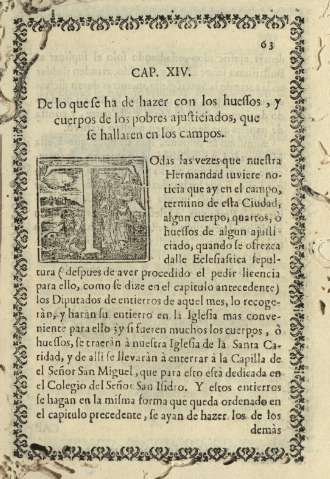 63
CAP. XIV.
De lo que se ha de hazer con los huessos, y
cuerpos de los pobres ajusticiados, que
se hallaren en los campos.
TOdas las vezes que nuestra
Hermandad tuviere no-
ticia que ay en el campo,
termino de esta Ciudad,
algun cuerpo, quartos, ò
huessos de algun ajusti-
ciado, quando se ofrezca
dalle Eclesiastica sepul-
tura (despues de aver procedido el pedir licencia
para ello, como se dize en el capitulo antecedente)
los Diputados de entierros de aquel mes, lo recoge-
ràn, y haràn su entierro en la Iglesia mas conve-
niente para ello; y si fueren muchos los cuerpos, ò
huessos, se traeràn à nuestra Iglesia de la Santa Ca-
ridad, y de alli se llevaràn à enterrar à la Capilla de
el Señor San Miguel, que para esto està dedicada en
el Colegio del Señor San Isidro. Y estos entierros
se hagan en la misma forma que queda ordenado en
el capitulo precedente, se ayan de hazer los de los
demàs